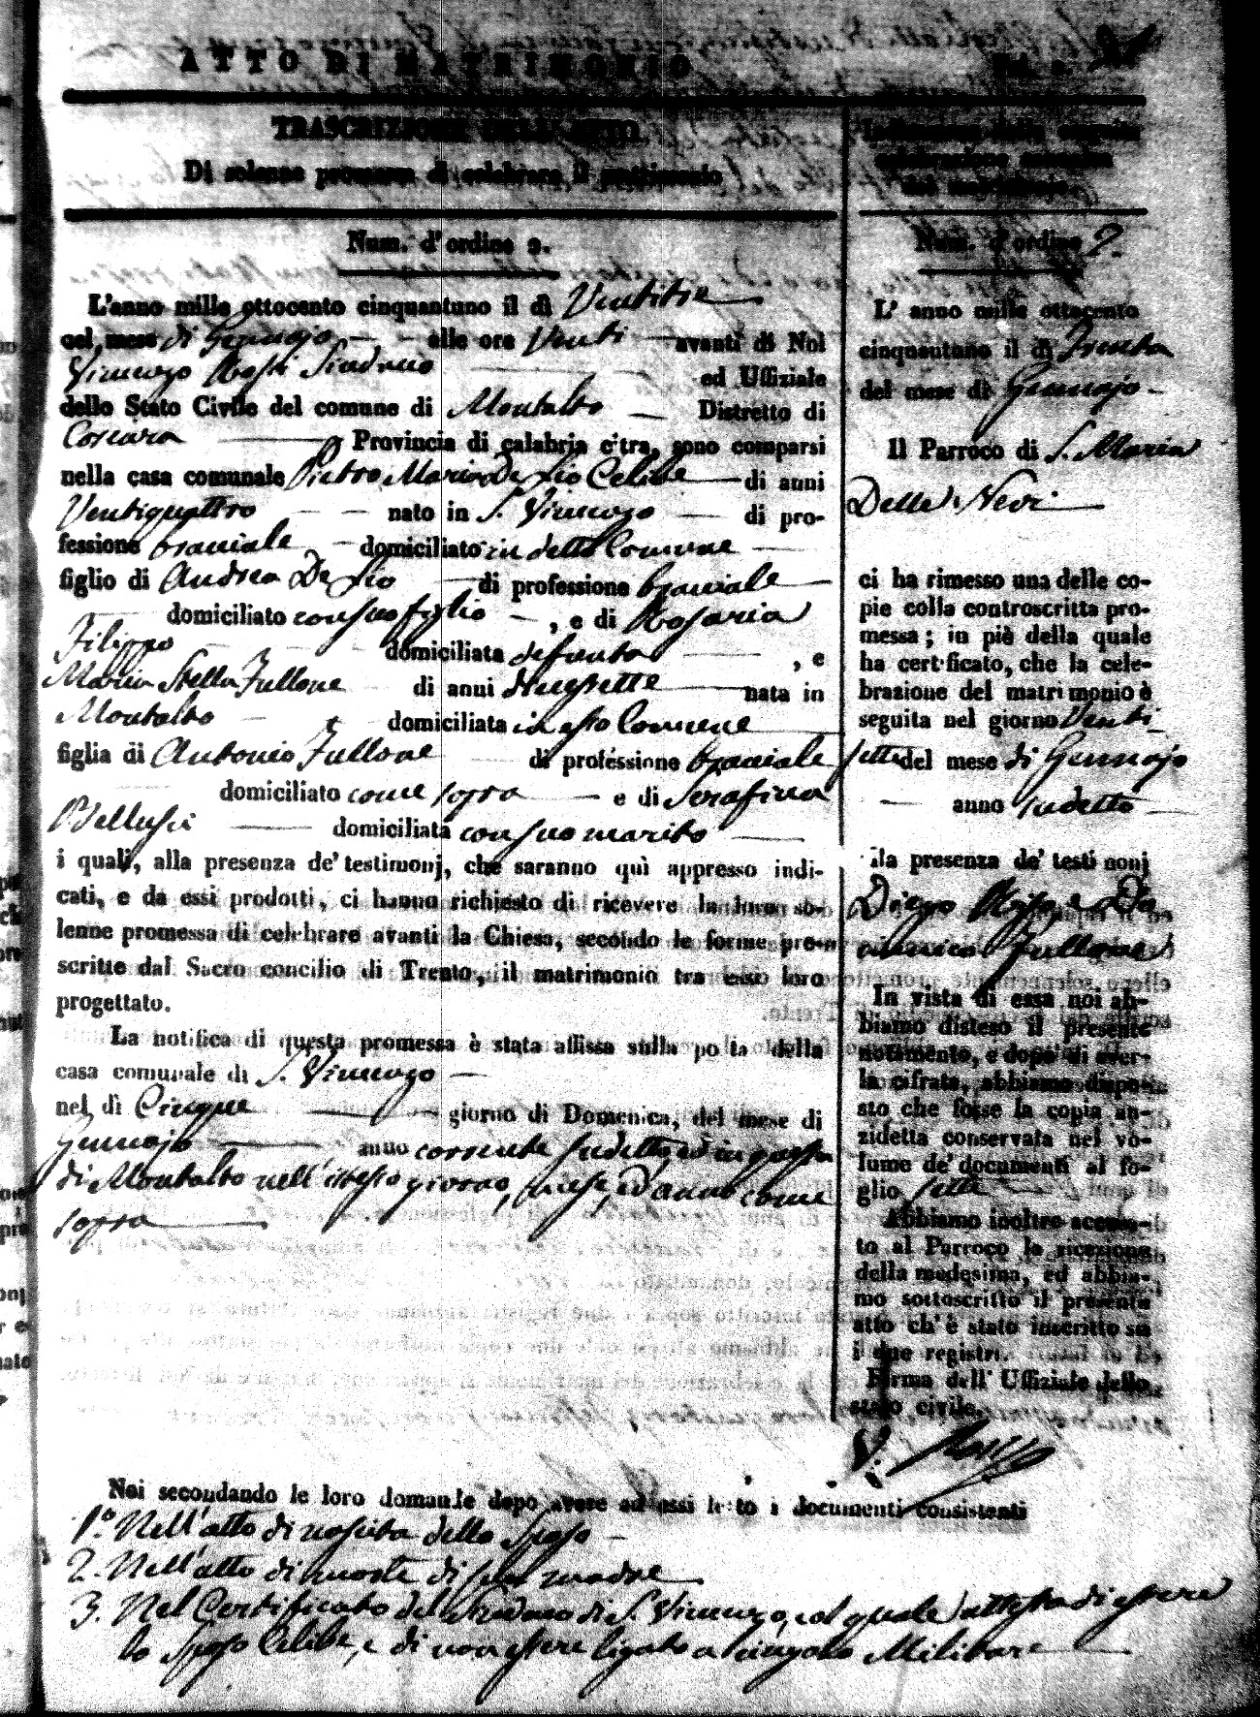 ATTO DI MATRIMONIO
TRASCRIZIONE DELL'ATTO
Di solenne promessa di celebrare il matrimonio
Num. d'ordine 2.
L'anno mille ottocento cinquantuno il dì Ventitre
del mese di Gennajo alle ore Venti avanti di Noi
Vincenzo Rossi Sindaco ed Uffiziale
dello Stato Civile del comune di Montalto Distretto di
Cosenza Provincia di calabria citra, sono comparsi
nella casa comunale Pietro Maria De Lio Celibe di anni
Ventiquattro nato in S. Vincenzo di pro-
fessione bracciale domiciliato in detto Comune
figlio di Andrea De Lio di professione bracciale
domiciliato con suo figlio, e di Rosaria
Filippo domiciliata defunta, e
Maria Stella Fullone di anni diecisette nata in
Montalto domiciliata in esso Comune
figlia di Antonio Fullone di professione bracciale
domiciliato come sopra e di Serafina
Bellusci domiciliata con suo marito
i quali, alla presenza de' testimonj, che saranno quì appresso indi-
cati, e da essi prodotti, ci hanno richiesto di ricevere la loro so-
lenne promessa di celebrare avanti la Chiesa, secondo le forme pre-
scritte dal Sacro concilio di Trento, il matrimonio tra essi loro
progettato.
La notifica di questa promessa è stata affissa sulla porta della
casa comunale di S. Vincenzo
nel dì Cinque giorno di Domenica, del mese di
Gennajo anno corrente sudetto, ed in questa
di Montalto nell'istesso giorno, mese, ed anno come
sopra
celebrazione
del matrimonio.
Num. d'ordine 2.
L' anno mille ottocento
cinquantuno il dì Trenta
del mese di Gennajo
Il Parroco di S. Maria
Delle Nevi
ci ha rimesso una delle co-
pie colla controscritta pro-
messa; in piè della quale
ha certificato, che la cele-
brazione del matrimonio è
seguita nel giorno Venti
sette del mese di Gennajo
anno sudetto
alla presenza de' testimonj
Diego e Do
menico Fullone
In vista di essa noi ab-
biamo disteso il presente
notamento, e dopo di aver-
la cifrata, abbiamo dispo-
sto che fosse la copia an-
zidetta conservata nel vo-
lume de' documenti al fo-
glio sette
Abbiamo inoltre accusa-
to al Parroco la ricezione
della medesima, ed abbia-
mo sottoscritto il presente
atto ch' è stato inscritto su
i due registri.
Firma dell' Uffiziale dello
stato civile.
V. Rossi
Noi secondando le loro domande dopo avere ad essi letto i documenti consistenti
1.° Nell'atto di nascita dello Sposo
2. Nell'atto di morte di sua madre
3. Nel Certificato del Sindaco di S. Vincenzo, col quale attesta di essere
lo Sposo Celibe, e di non essere ligato a vincolo Militare